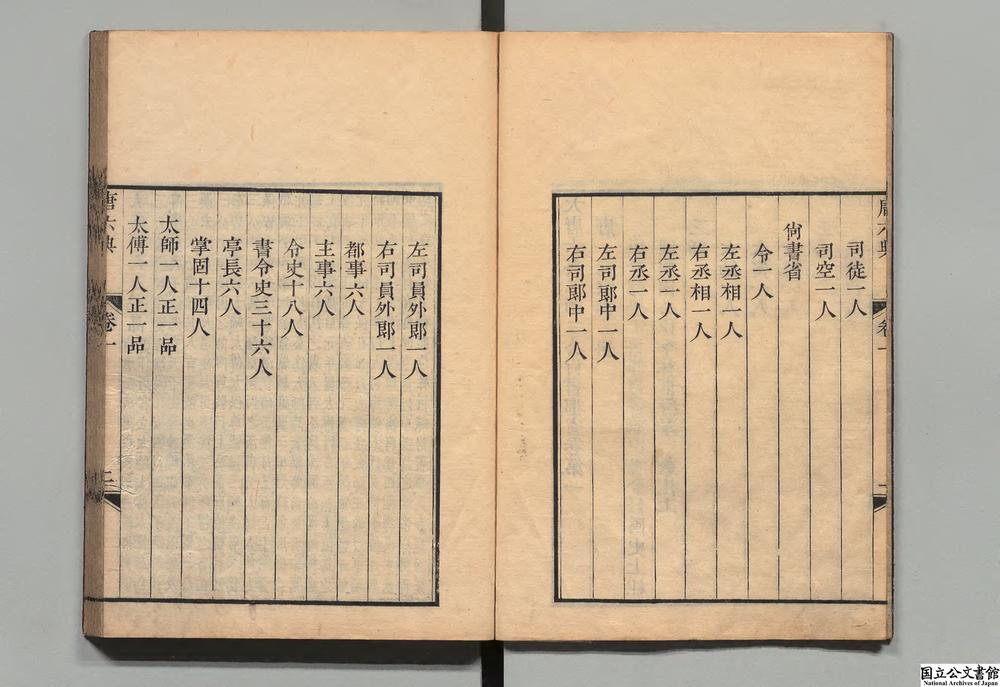 司徒一人
司空一人
尚書省
令一人
左丞相一人
右丞相一人
左丞一人
右丞一人
左司郎中一人
右司郎中一人
左司員外郎一人
右司員外郎一人
都事六人
主事六人
令史十八人
書令史三十六人
亭長六人
掌固十四人
太師一人正一品
太傅一人正一品
唐六典
卷一
二
国立公文書館
National Archives of Japan